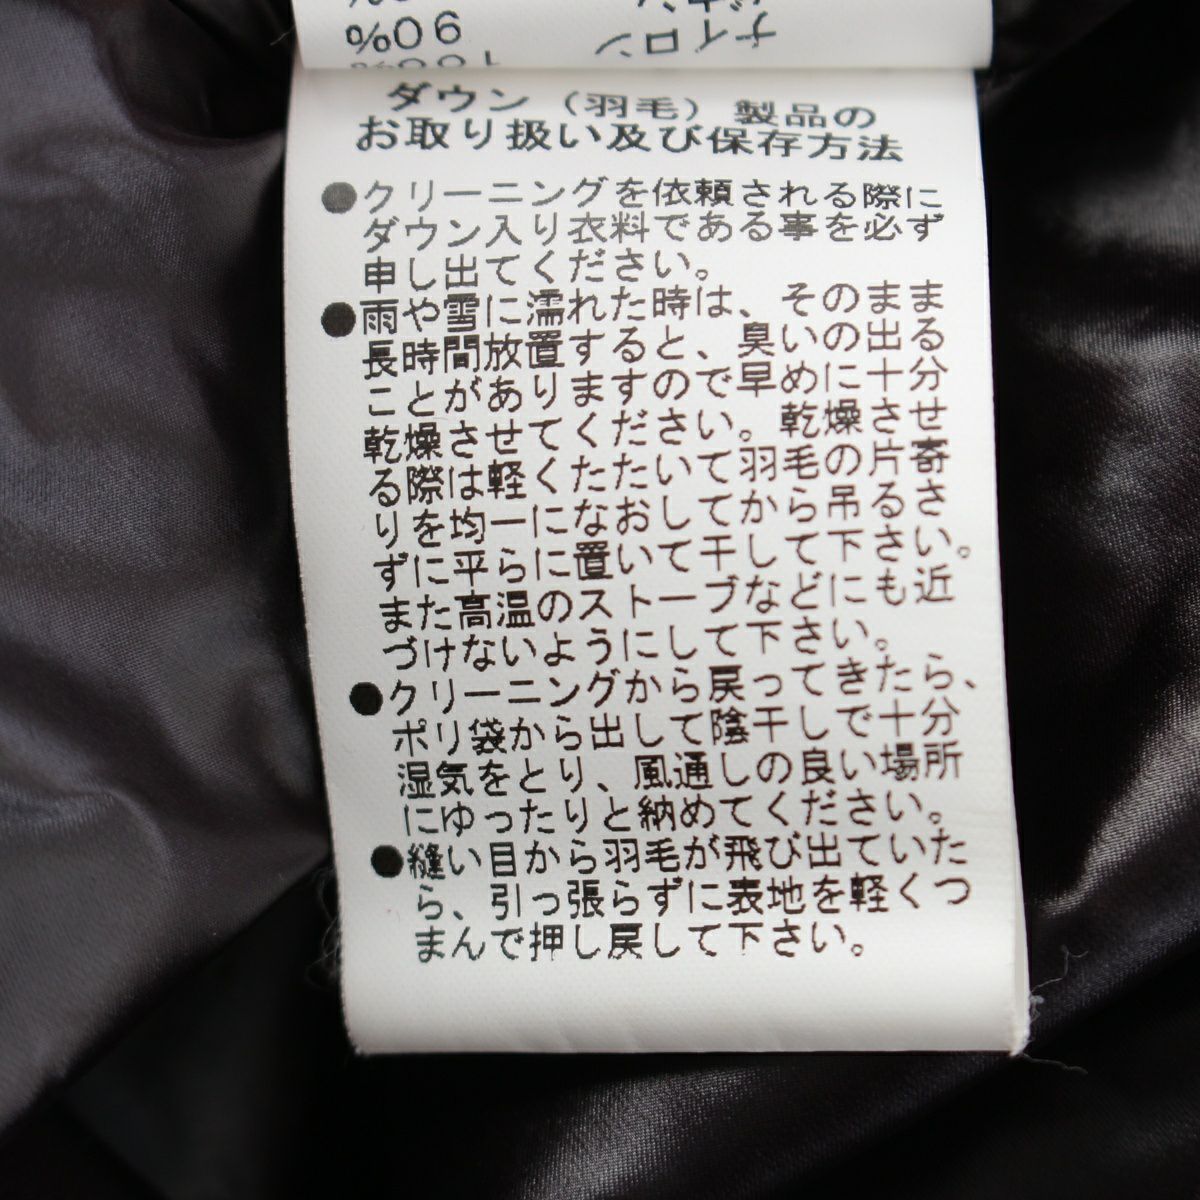 ナイロン 100%
90%
ダウン（羽毛）製品の
お取り扱い及び保存方法
●クリーニングを依頼される際に
ダウン入り衣料である事を必ず
申し出てください。
●雨や雪に濡れた時は、そのまま
長時間放置すると、臭いの出る
ことがありますので早めに十分
乾燥させてください。乾燥させ
る際は軽くたたいて羽毛の片寄
りを均一になおしてから吊るさ
ずに平らに置いて干して下さい。
また高温のストーブなどにも近
づけないようにして下さい。
●クリーニングから戻ってきたら、
ポリ袋から出して陰干しで十分
湿気をとり、風通しの良い場所
にゆったりと納めてください。
●縫い目から羽毛が飛び出ていた
ら、引っ張らずに表地を軽くつ
まんで押し戻して下さい。